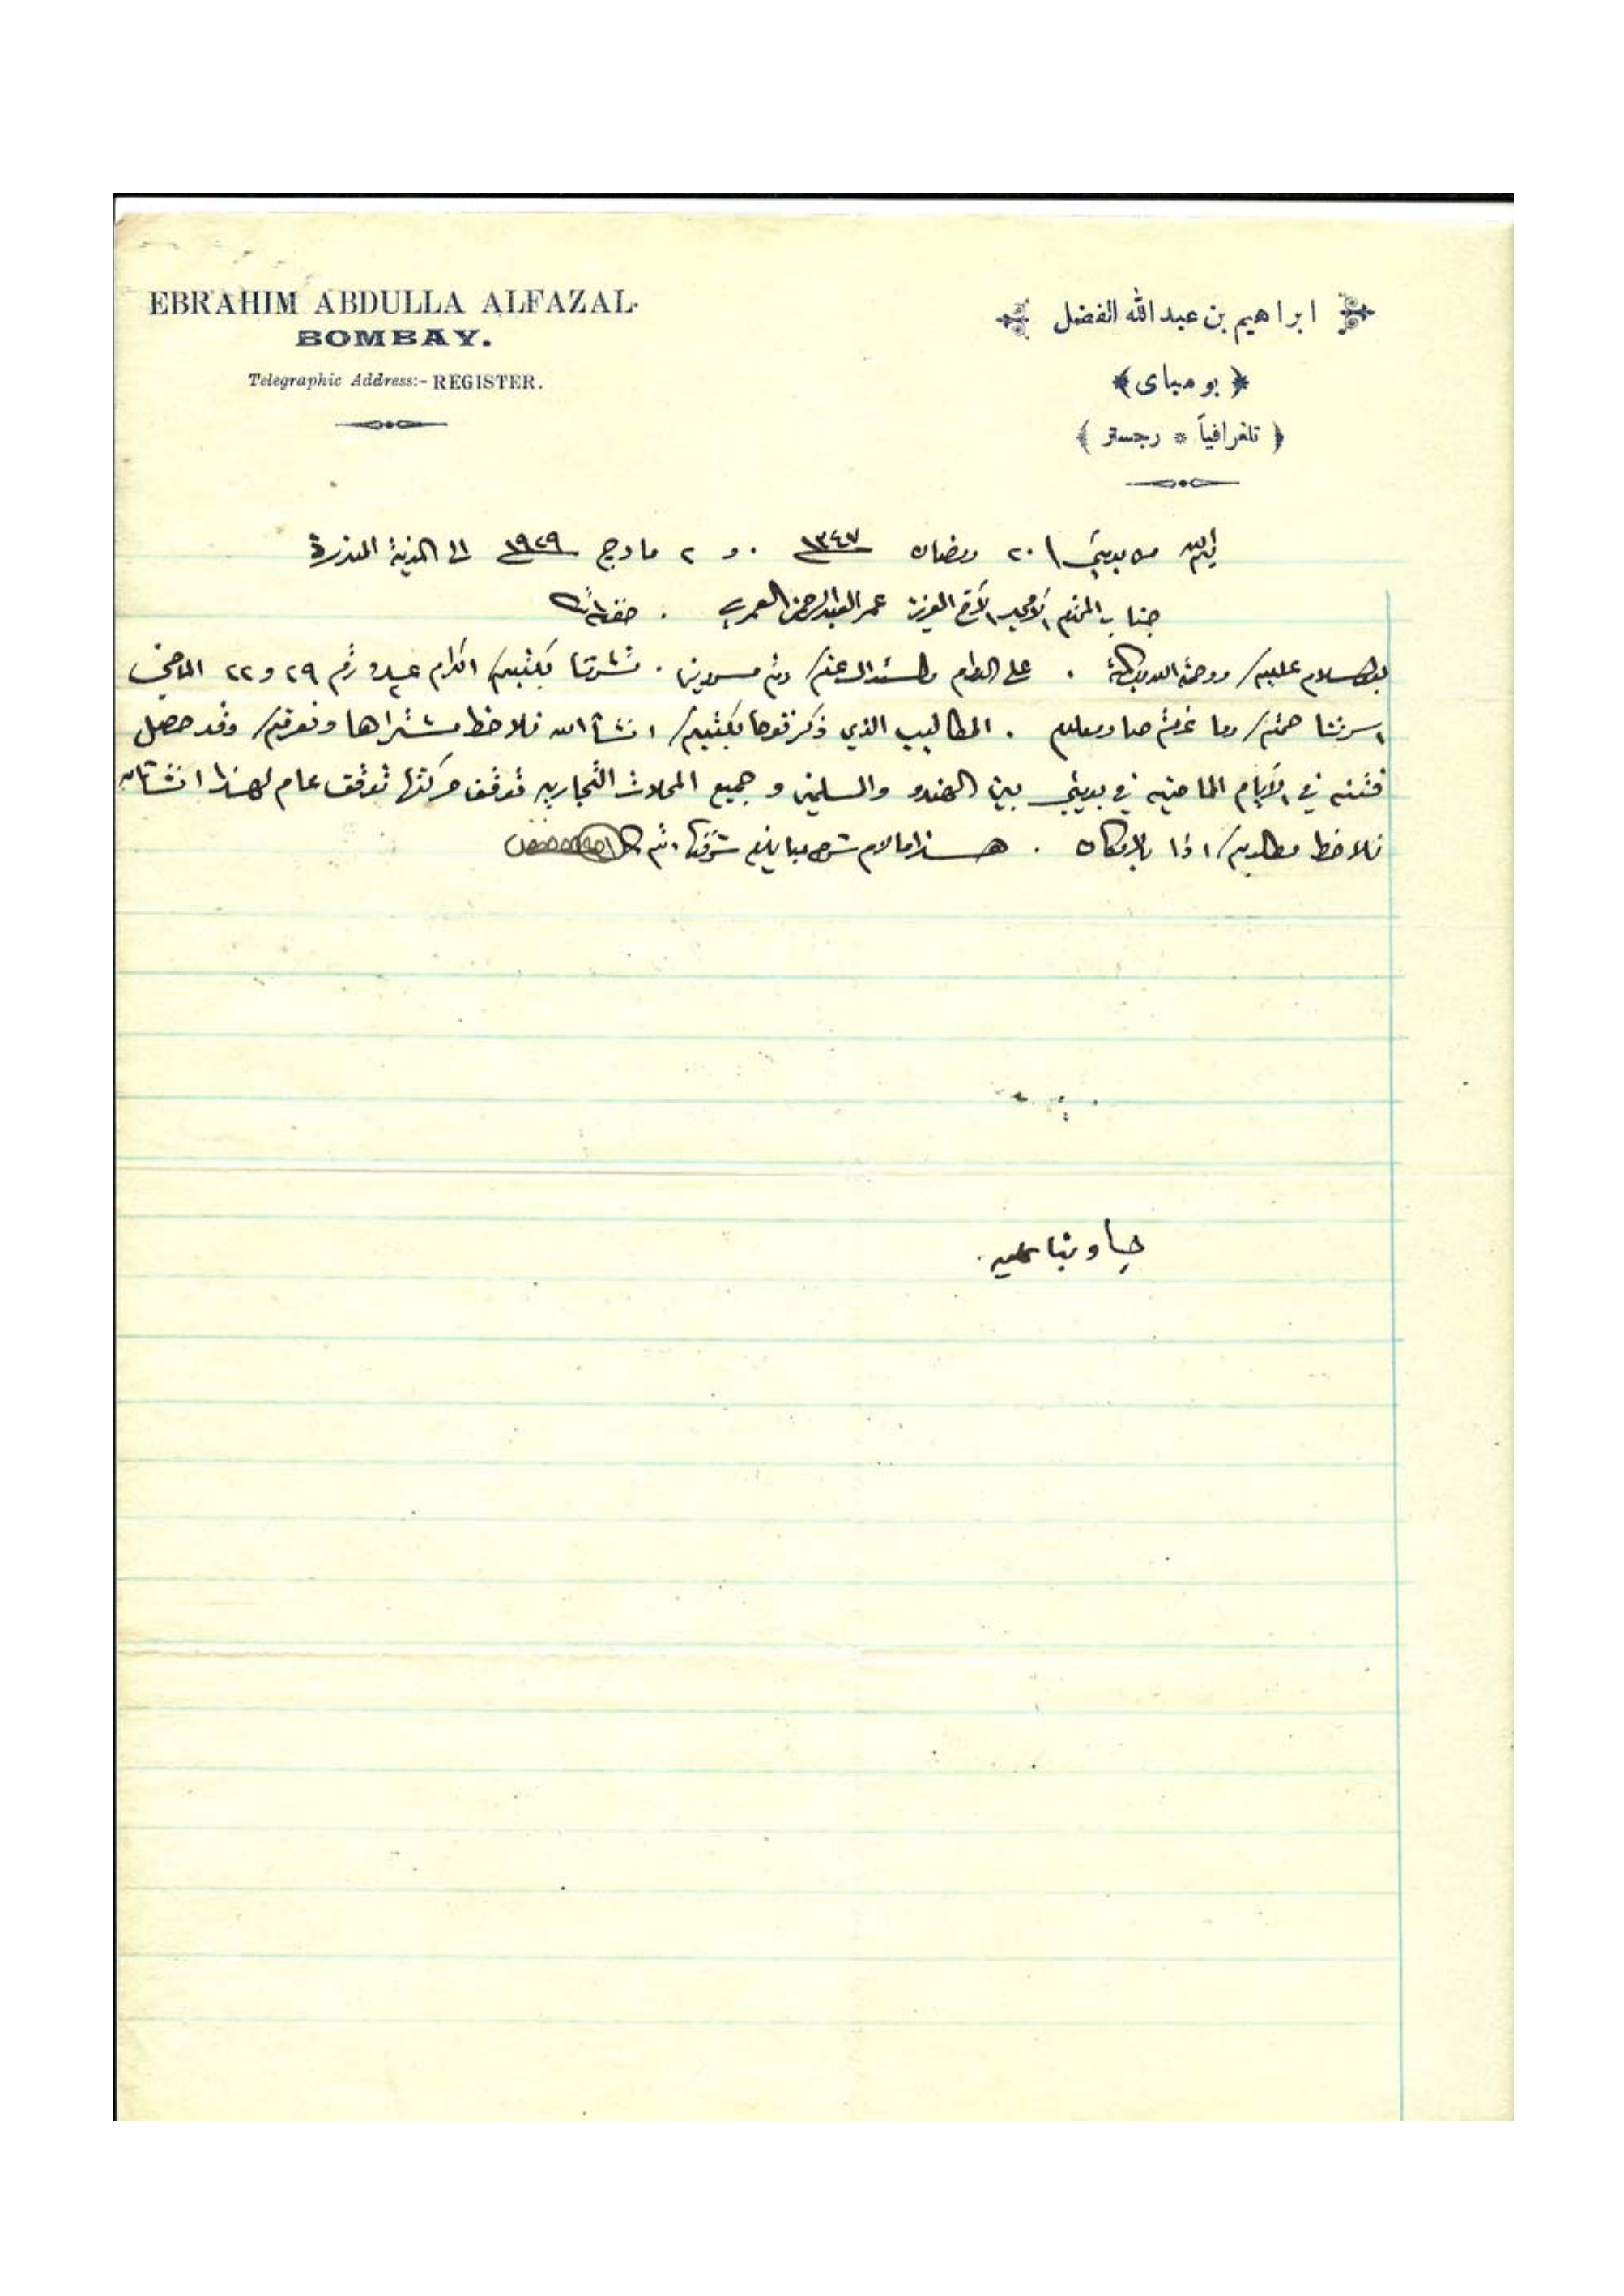 EBRAHIM ABDULLA ALFAZAL.
BOMBAY.
Telegraphic Address:- REGISTER.
ابراهيم بن عبد الله الفضل
﴿ بومباى ﴾
﴿ تلغرافياً * رجستر ﴾
من بمبي ٢٠ رمضان ١٣٤٧ و ٢ مارج ١٩٢٩ الى المدينة المنورة
جناب المكرم الامجد الأخ العزيز عمر العبد الرحمن العمري .
بعد السلام عليكم ورحمة الله وبركاته . على الدوام والسئوال عنكم دمتم مسرورين . تشرفنا بكتبكم الكرام عدد رقم ٢٩ و ٢٢ الماضي
اسرتنا صحتكم وما عرفتم صار معلوم . المطاليب الذي ذكرتوها بكتبكم انشا الله نلاحظ مشتراها ونعرفكم وقد حصل
فتنه في الأيام الماضيه في بمبي بين الهندو والمسلمين و جميع المحلات التجاريه توقفت حركتها توقف عام لهذا انشاالله
نلاحظ مطلوبكم اذا بالامكان . هذا ما لزم